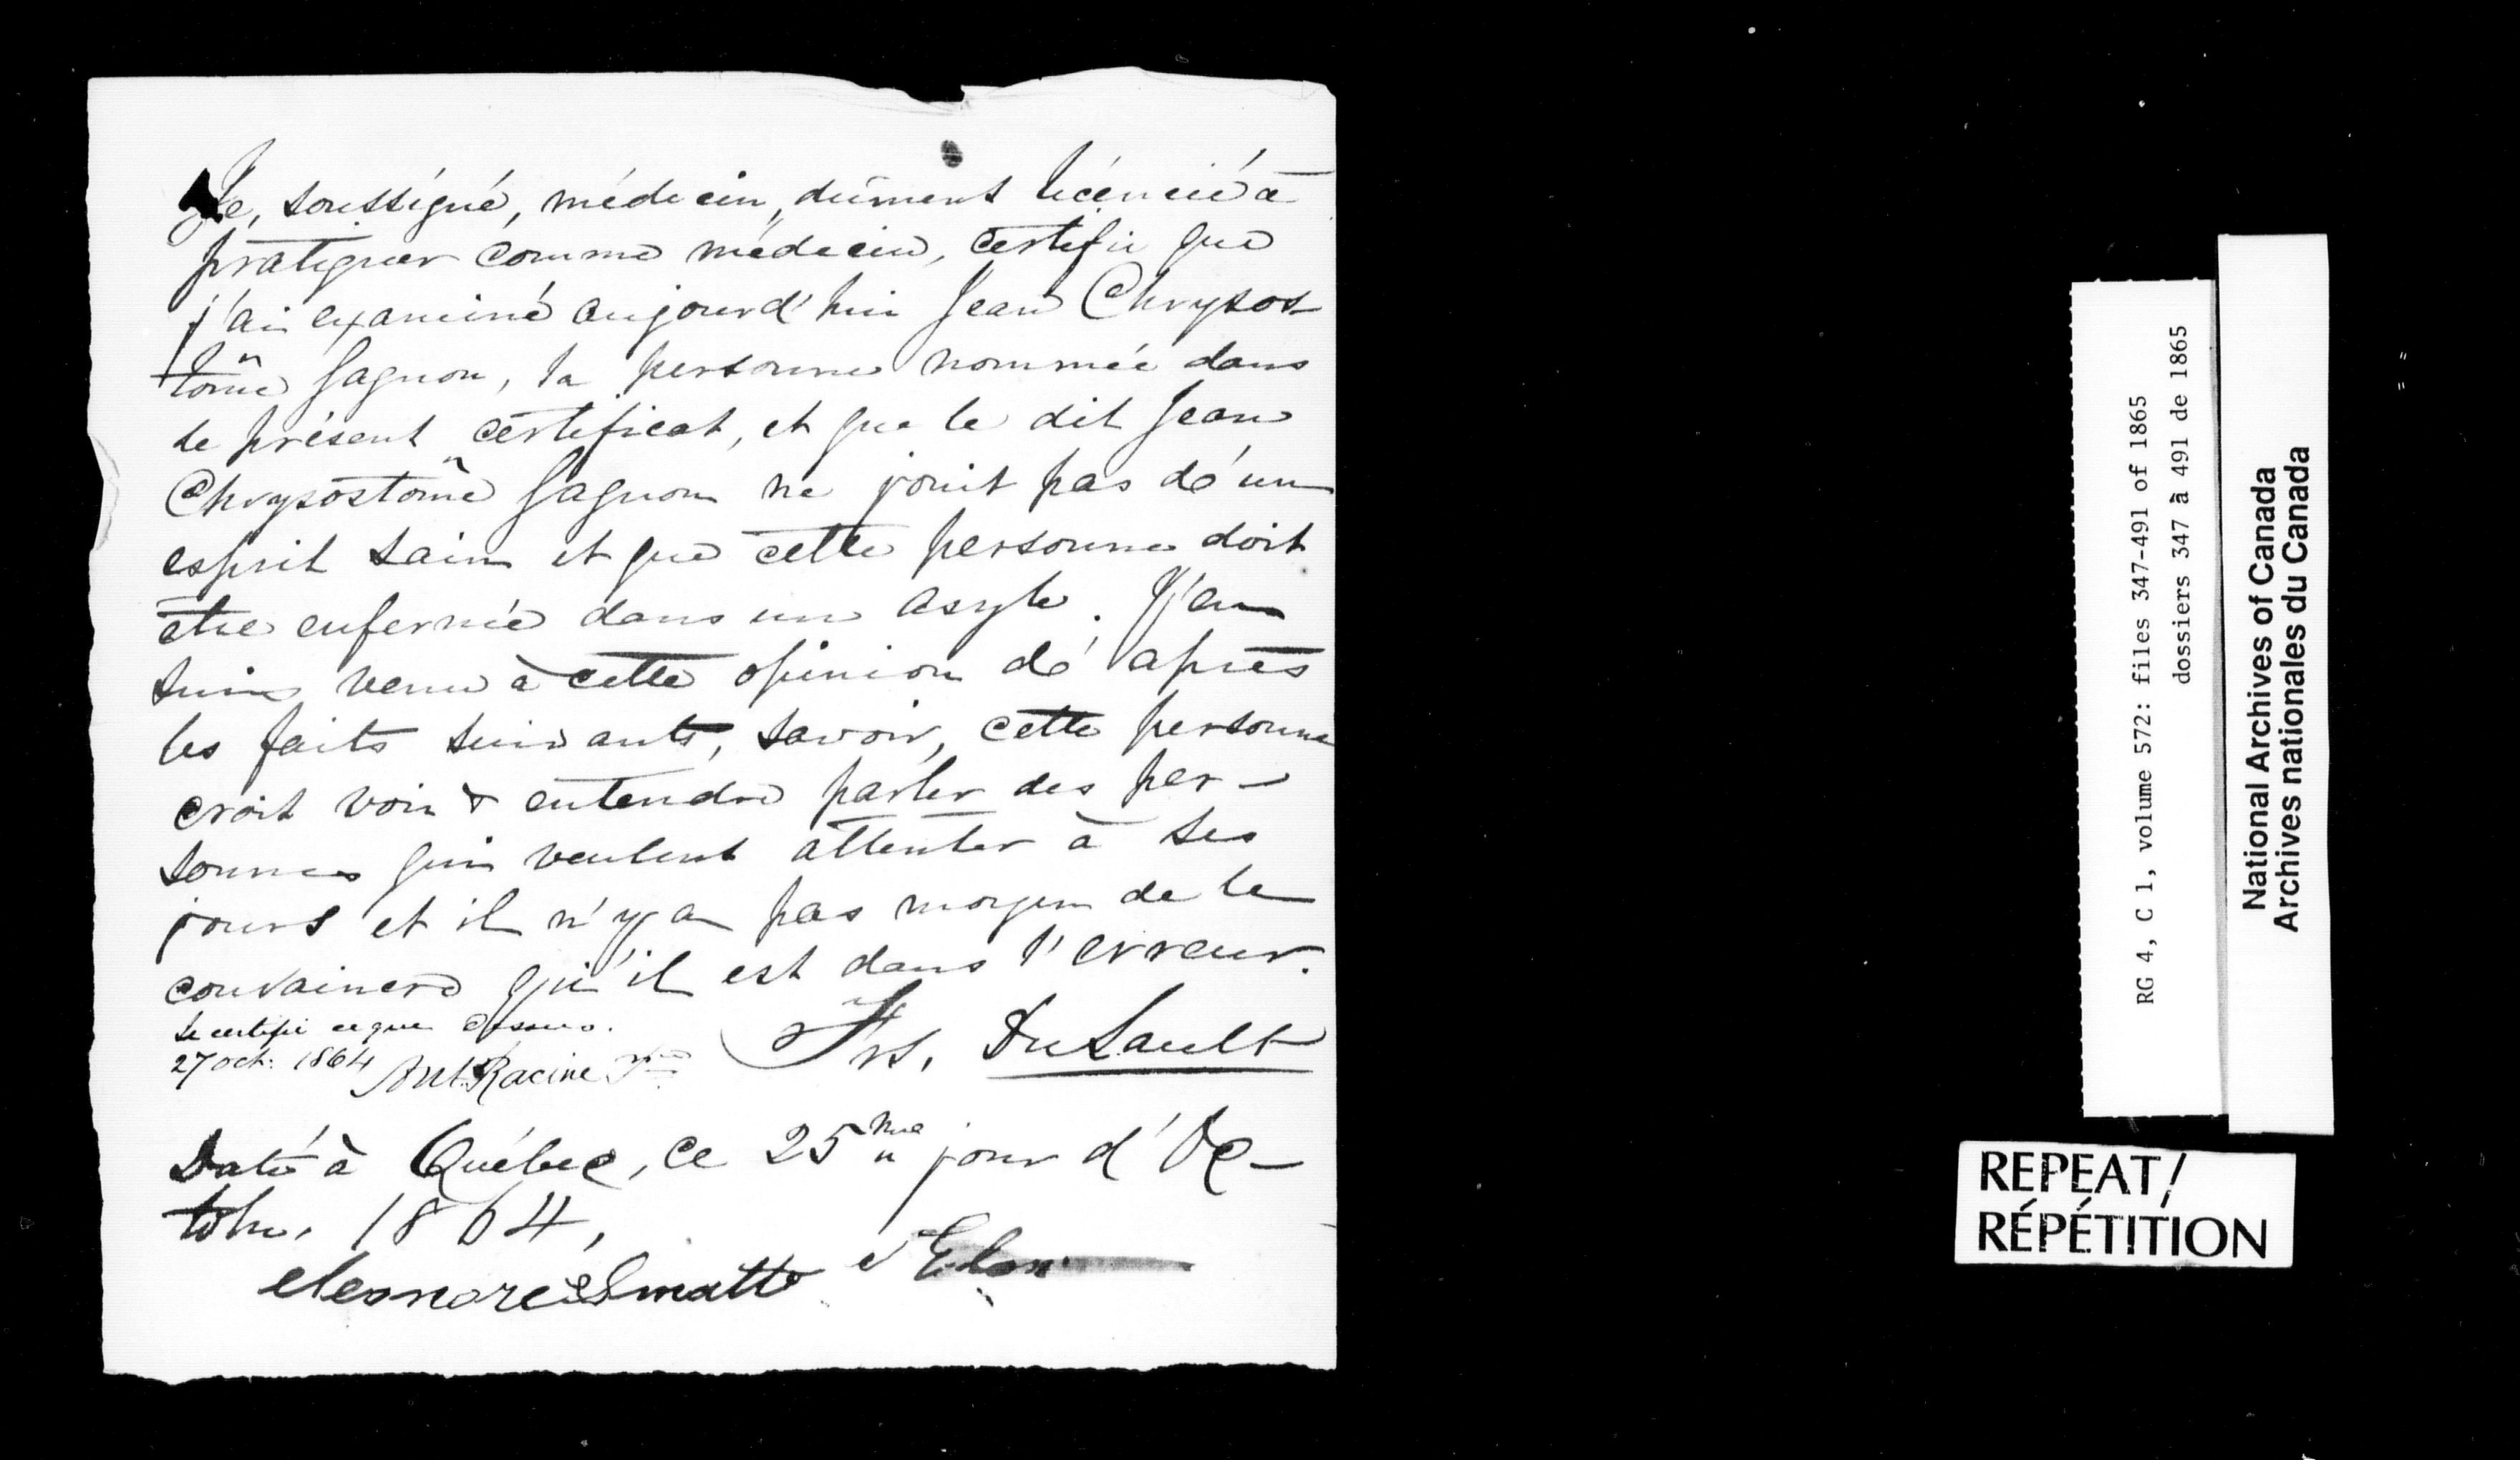 Je, soussigné, médecin, dûment licencié à
pratiquer comme médecin, certifie que
j'ai examiné aujourd'hui Jean Chrysos-
tôme Gagnon, la personne nommée dans
le présent certificat, et que le dit Jean
Chrysostôme Gagnon ne jouit pas d'un
esprit sain et que cette personne doit
être enfermée dans un asyle. J'en
suis venu à cette opinion d'après
les faits suivants, savoir, cette personne
croit voir & entendre parler des per-
sonnes qui veulent attenter à ses
jours et il n'y a pas moyen de le
convaincre qu'il est dans l'erreur.
Frs. DuSault
Je certifie ce que dessus.
27 oct. 1864 Ant. Racine Ptre
Daté à Québec, ce 25me jour d'Oc-
tobre. 1864,
eleonore
RG 4, C 1, volume 572: files 347-491 of 1865
dossiers 347 à 491 de 1865
National Archives of Canada
Archives nationales du Canada
REPEAT/
RÉPÉTITION